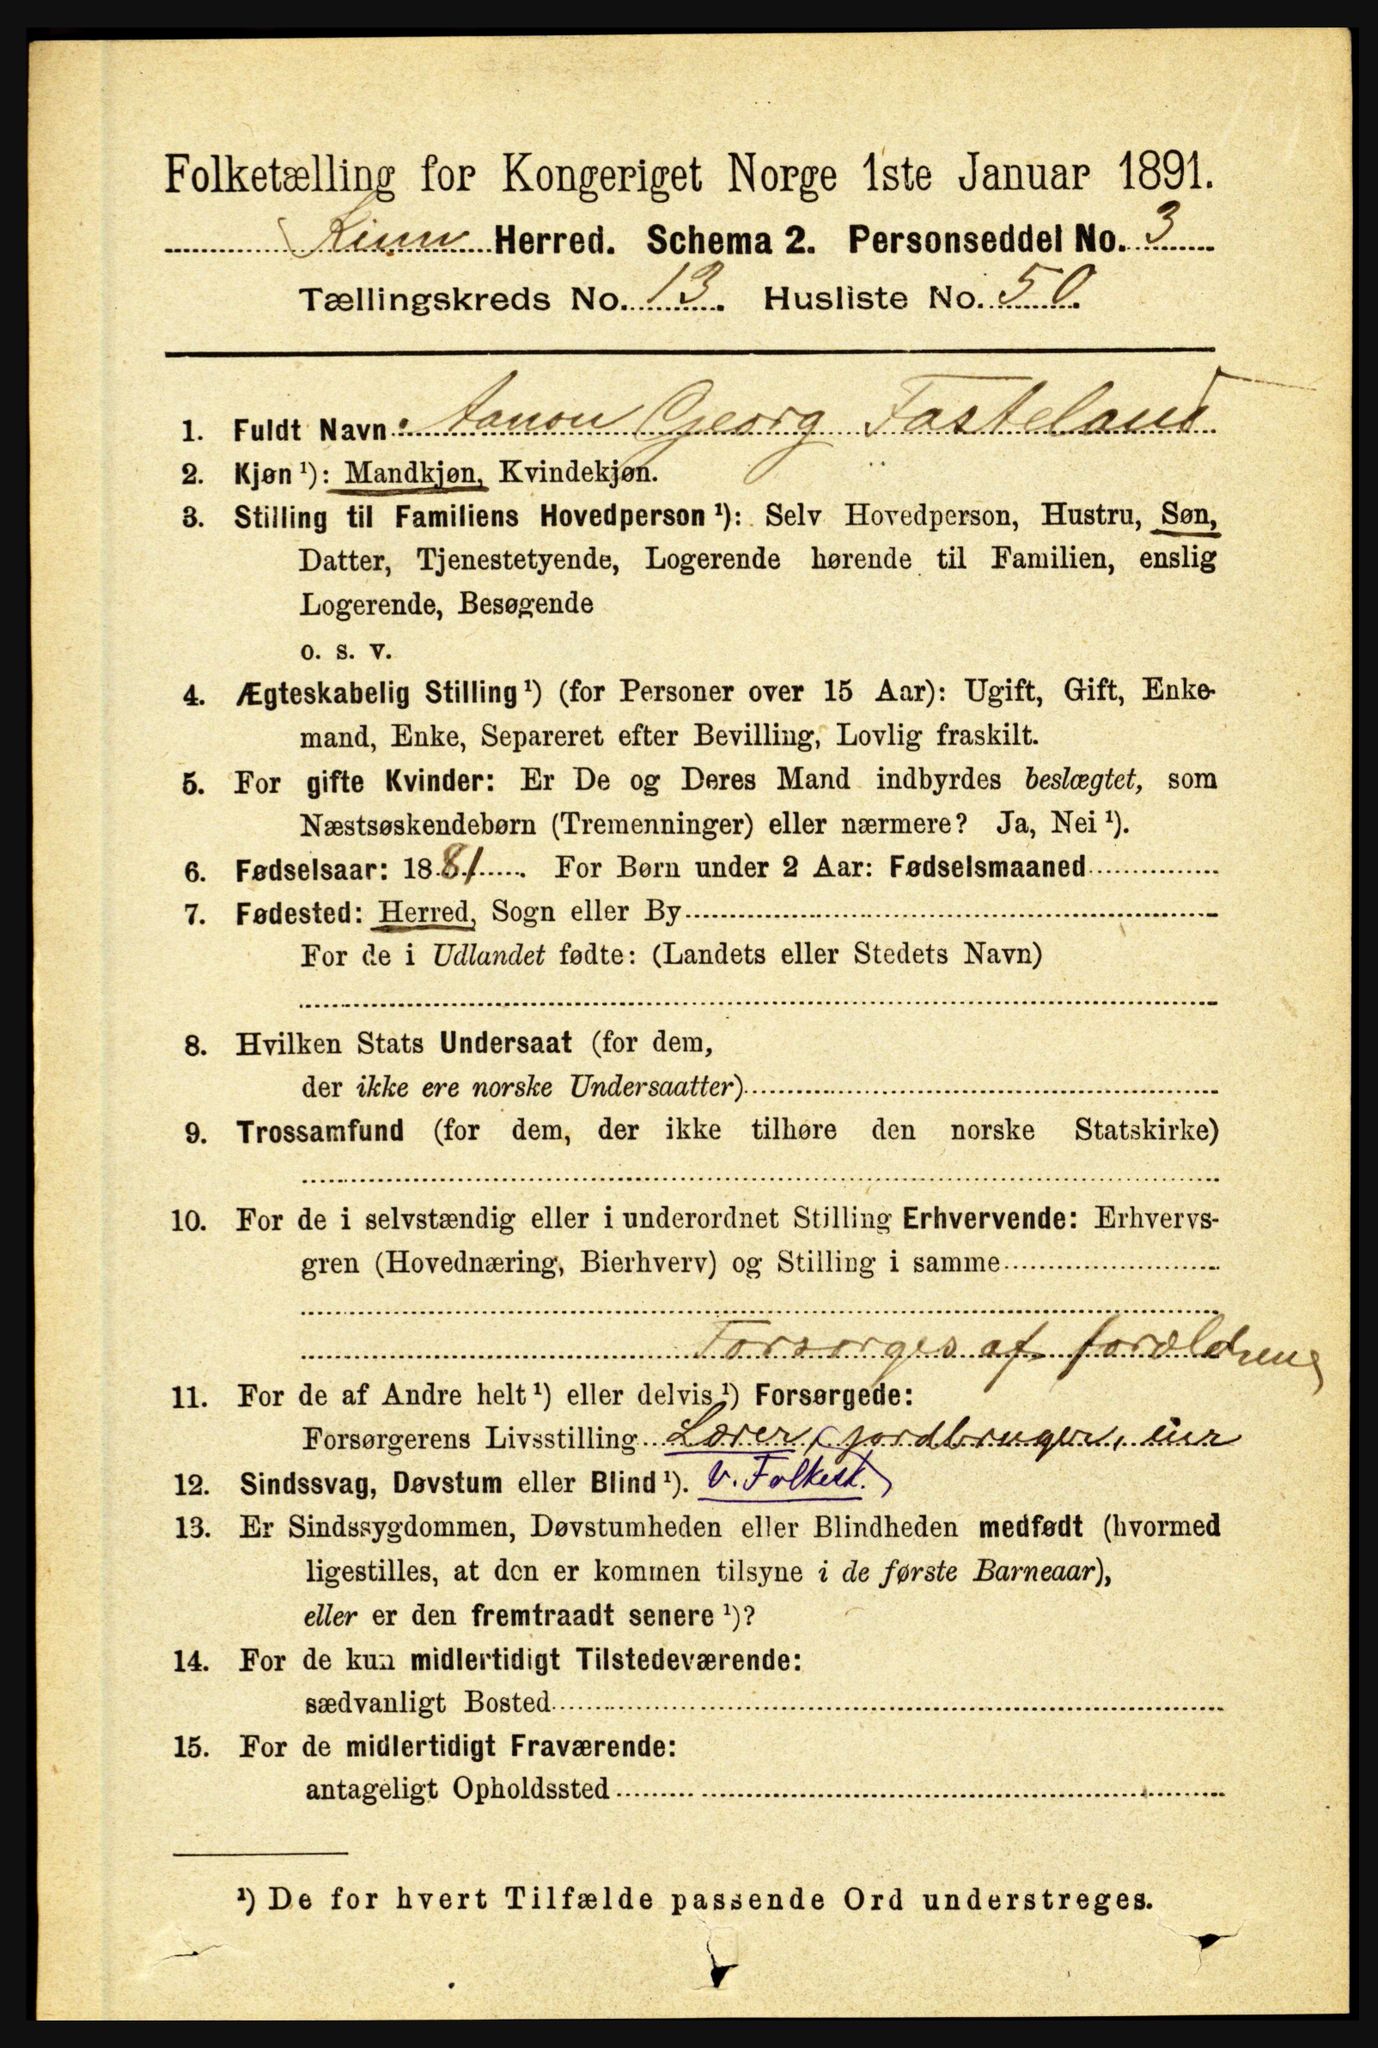 Folketælling for Kongeriget Norge 1ste Januar 1891.
Kinn Herred. Schema 2. Personseddel No. 3
Tællingskreds No. 13. Husliste No. 50.
1. Fuldt Navn Aamon Georg Fasteland
2. Kjøn ¹): Mandkjøn, Kvindekjøn.
3. Stilling til Familiens Hovedperson ¹): Selv Hovedperson, Hustru, Søn,
Datter, Tjenestetyende, Logerende hørende til Familien, enslig
Logerende, Besøgende
o. s. v.
4. Ægteskabelig Stilling ¹) (for Personer over 15 Aar): Ugift, Gift, Enke-
mand, Enke, Separeret efter Bevilling, Lovlig fraskilt.
5. For gifte Kvinder: Er De og Deres Mand indbyrdes beslægtet, som
Næstsøskendebørn (Tremenninger) eller nærmere? Ja, Nei ¹).
6. Fødselsaar: 1881. For Børn under 2 Aar: Fødselsmaaned
7. Fødested: Herred, Sogn eller By
For de i Udlandet fødte: (Landets eller Stedets Navn)
8. Hvilken Stats Undersaat (for dem,
der ikke ere norske Undersaatter)
9. Trossamfund (for dem, der ikke tilhøre den norske Statskirke)
10. For de i selvstændig eller i underordnet Stilling Erhvervende: Erhvervs-
gren (Hovednæring, Bierhverv) og Stilling i samme
Forsørges af forældrene
11. For de af Andre helt ¹) eller delvis ¹) Forsørgede:
Forsørgerens Livsstilling Lærer, jordbruger,
12. Sindssvag, Døvstum eller Blind ¹). v. Folkesk.
13. Er Sindssygdommen, Døvstumheden eller Blindheden medfødt (hvormed
ligestilles, at den er kommen tilsyne i de første Barneaar),
eller er den fremtraadt senere ¹)?
14. For de kun midlertidigt Tilstedeværende:
sædvanligt Bosted
15. For de midlertidigt Fraværende:
antageligt Opholdssted
¹) De for hvert Tilfælde passende Ord understreges.